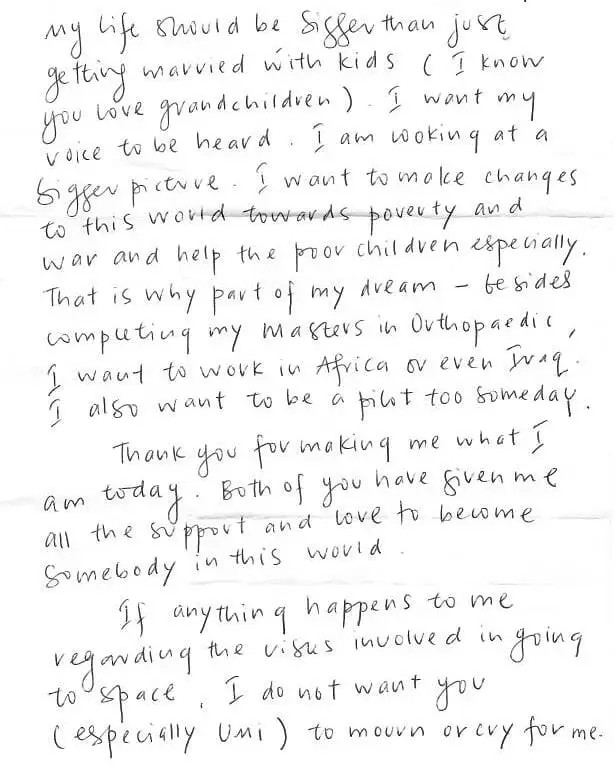 my life should be bigger than just
getting married with kids ( I know
you love grandchildren ). I want my
voice to be heard. I am looking at a
bigger picture. I want to make changes
to this world towards poverty and
war and help the poor children especially.
That is why part of my dream - besides
completing my Masters in Orthopaedic,
I want to work in Africa or even Iraq.
I also want to be a pilot too someday.
Thank you for making me what I
am today. Both of you have given me
all the support and love to become
somebody in this world.
If anything happens to me
regarding the risks involved in going
to space, I do not want you
(especially Umi) to mourn or cry for me.